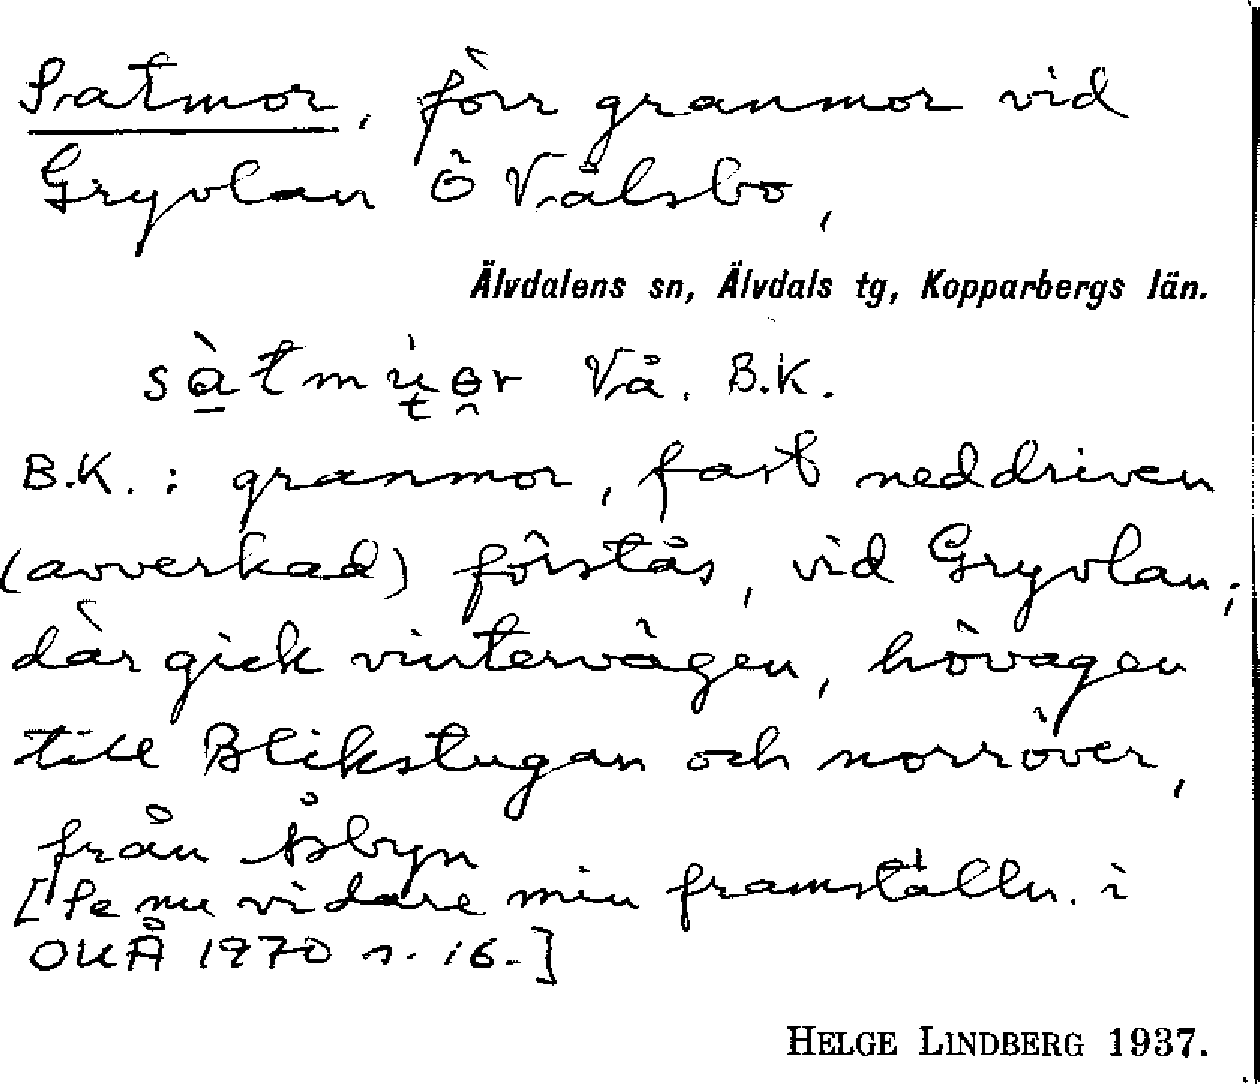 Satmor, förr granmor vid
Gryvlan Ö Vålsbo,
Älvdalens sn, Älvdals tg, Kopparbergs län.
Vå. B.K.
B.K. : granmor, fast neddriven
(avverkad) förstås, vid Gryvlan;
där gick vintervägen, hövägen
till Blikstugan och norröver,
från Åsbyn
[Se nu vidare min framställn. i
OUÅ 1970 s. 16.]
HELGE LINDBERG 1937.